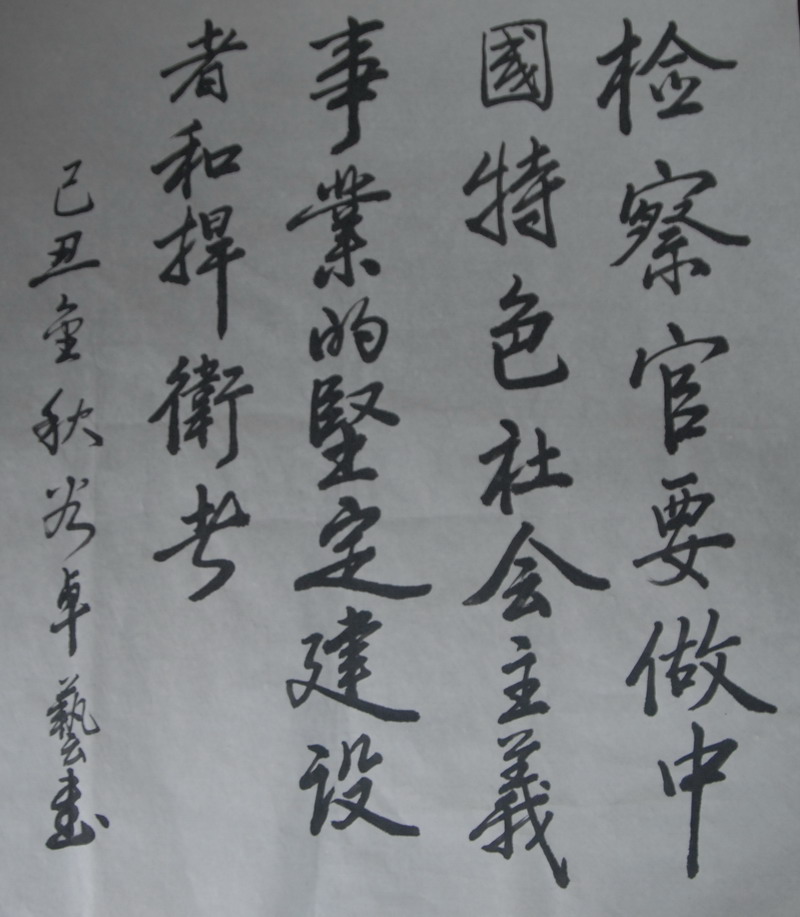 检察官要做中
國特色社会主義
事業的堅定建设
者和捍衛者
己丑金秋谷卓藝書